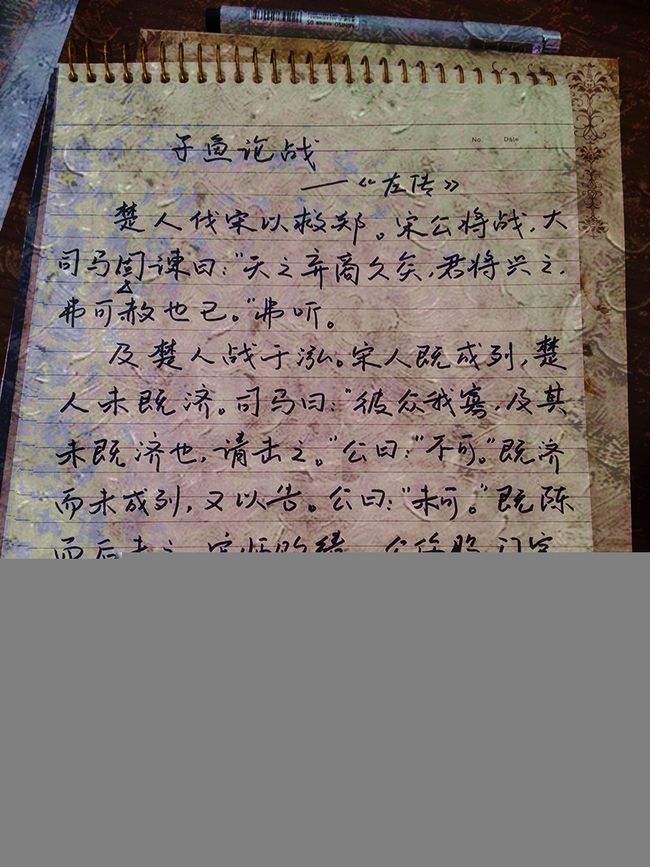 No. Date
子鱼论战
——《左传》
楚人伐宋以救郑。宋公将战，大
司马固谏曰：“天之弃商久矣，君将兴之，
弗可赦也已。”弗听。
及楚人战于泓。宋人既成列，楚
人未既济。司马曰：“彼众我寡，及其
未既济也，请击之。”公曰：“不可。”既济
而未成列，又以告。公曰：“未可。”既陈